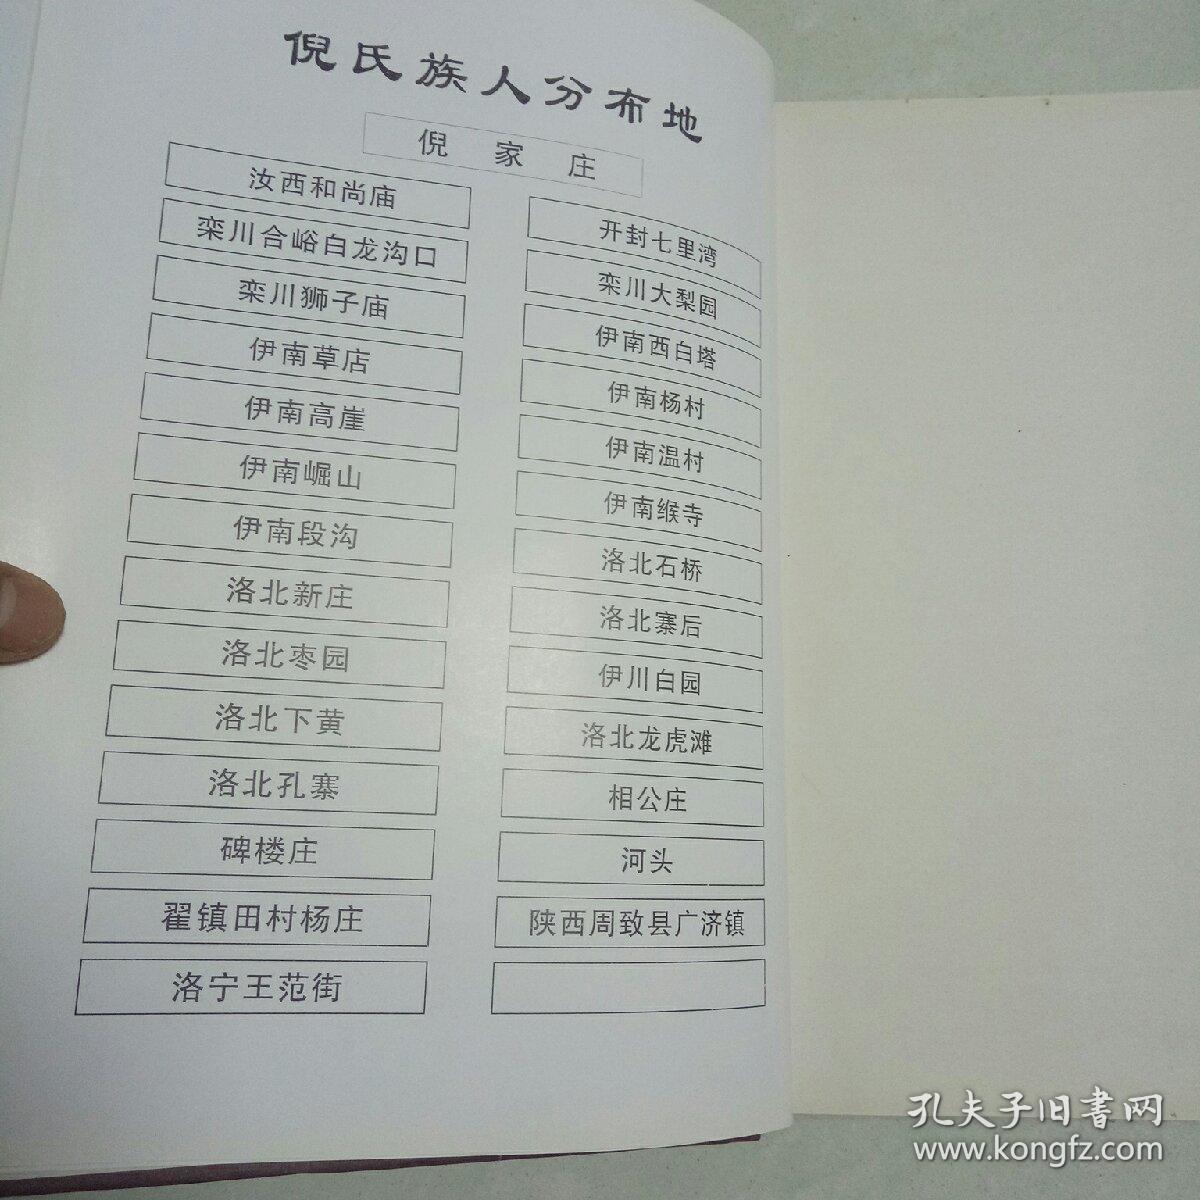 倪氏族人分布地
倪家庄
汝西和尚庙
栾川合峪白龙沟口
栾川狮子庙
伊南草店
伊南高崖
伊南崛山
伊南段沟
洛北新庄
洛北枣园
洛北下黄
洛北孔寨
碑楼庄
翟镇田村杨庄
洛宁王范街
开封七里湾
栾川大梨园
伊南西白塔
伊南杨村
伊南温村
伊南缑寺
洛北石桥
洛北寨后
伊川白园
洛北龙虎滩
相公庄
河头
陕西周致县广济镇
孔夫子旧书网
www.kongfz.com